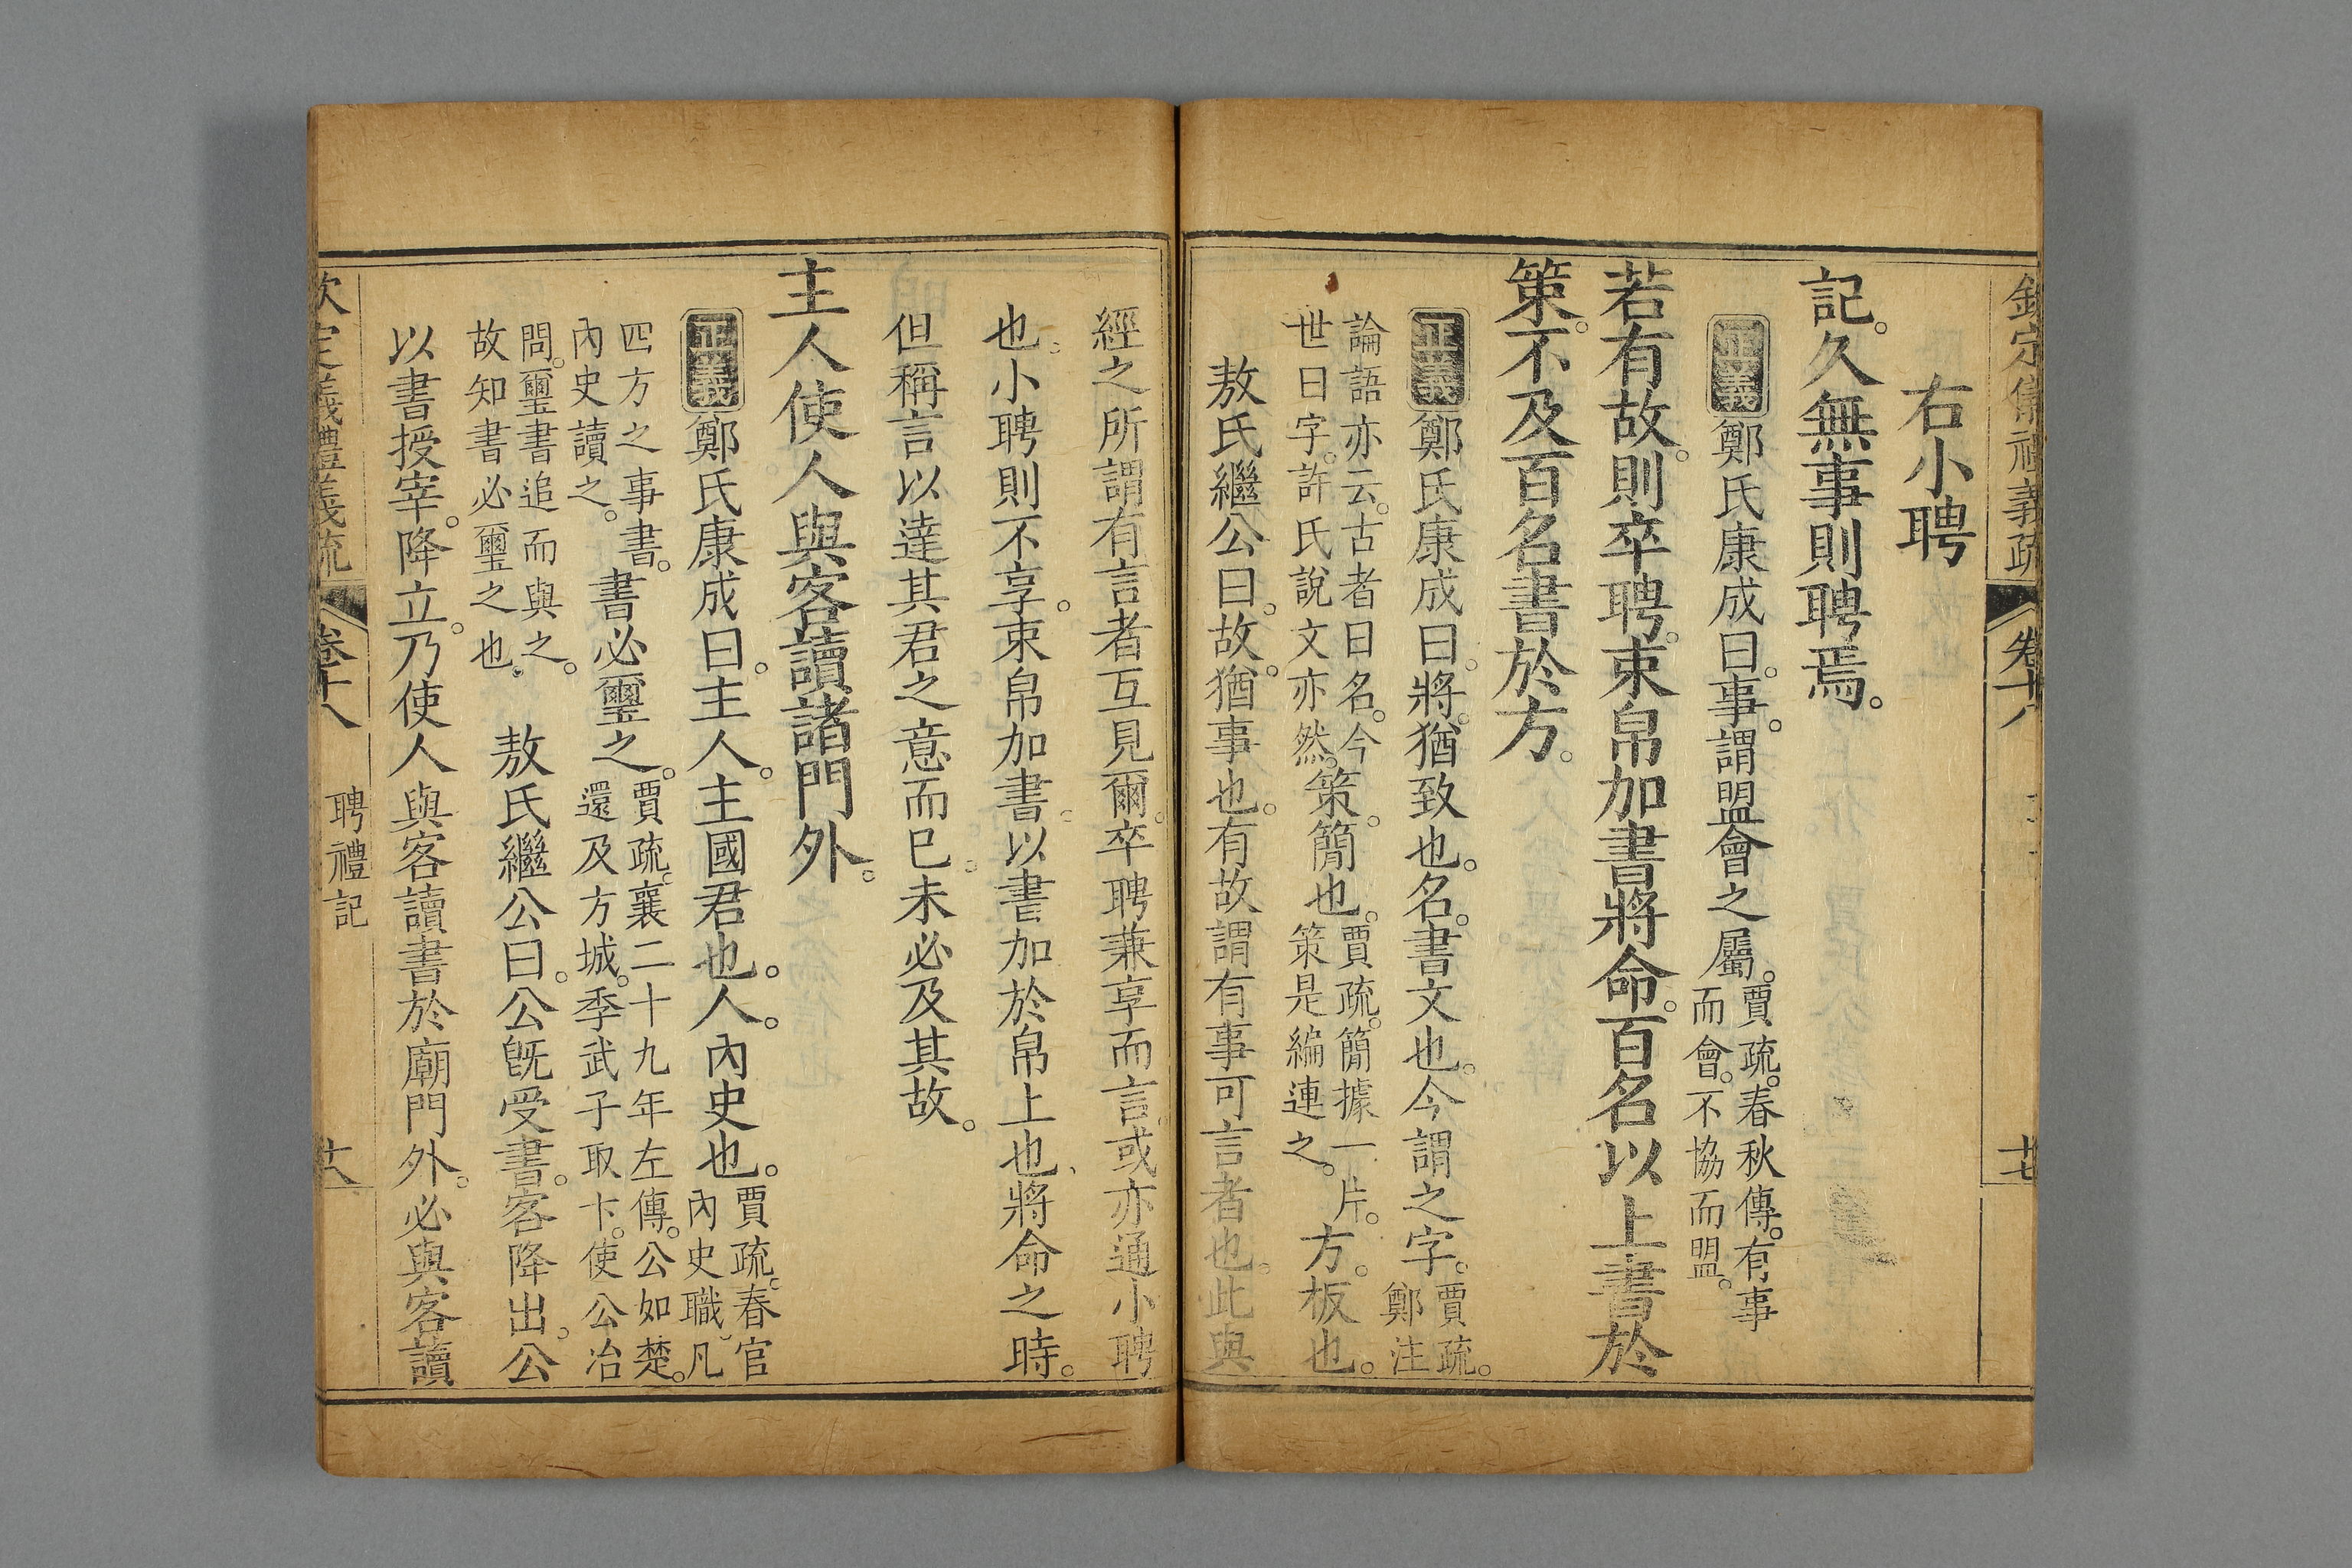 欽定儀禮義疏 卷十八 十七
右小聘
記。久無事則聘焉。
正義 鄭氏康成曰。事。謂盟會之屬。
賈疏。春秋傳。有事
而會。不協而盟。
若有故。則卒聘。束帛加書將命。百名以上書於
策。不及百名書於方。
正義 鄭氏康成曰。將。猶致也。名。書文也。今謂之字。
賈疏。
鄭注
論語亦云。古者曰名。今
世曰字。許氏說文亦然。
策。簡也。
賈疏。簡據一片。
策是編連之。
方。板也。
敖氏繼公曰。故。猶事也。有故謂有事可言者也。此與
經之所謂有言者互見爾。卒聘兼享而言。或亦通小聘
也。小聘則不享。束帛加書。以書加於帛上也、將命之時。
但稱言以達其君之意而已。未必及其故。
主人使人與客讀諸門外。
正義 鄭氏康成曰。主人。主國君也。人。內史也。
賈疏。春官
內史職。凡
四方之事書。
內史讀之。
書必璽之。
賈疏。襄二十九年左傳。公如楚。
還及方城。季武子取卞。使公冶
問。璽書追而與之。
故知書必璽之也。
敖氏繼公曰。公旣受書。客降出。公
以書授宰。降立。乃使人與客讀書於廟門外。必與客讀
欽定儀禮義疏 卷十八 聘禮記 十八